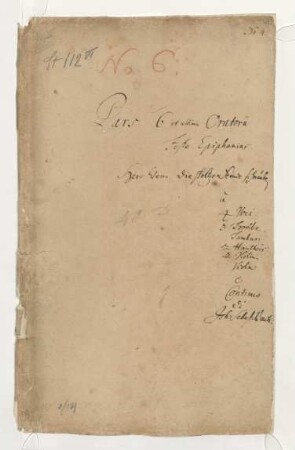 No. 6.
Pars 6 et ultima Oratorii
Festo Epiphanias
Herr wenn die stolzen Feinde schnauben
à
4 Voci
3 Trombe
Tamburi
2 Hautbois
2 Violini
Viola
e
Continuo
di
Joh. Seb. Bach